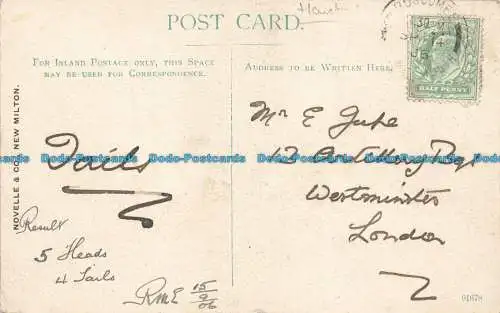 POST CARD.
Hants
FOR INLAND POSTAGE ONLY, THIS SPACE
MAY BE USED FOR CORRESPONDENCE.
ADDRESS TO BE WRITTEN HERE.
HALF PENNY
NOVELLE & CO., NEW MILTON.
Tails
Result
5 Heads
4 Tails
RME 15/9/06
Mr E
12 Artillery Bgs
Westminster
London
Dodo-Postcards Dodo-Postcards Dodo-Postcards Dodo-Postcards Dodo-Postcards